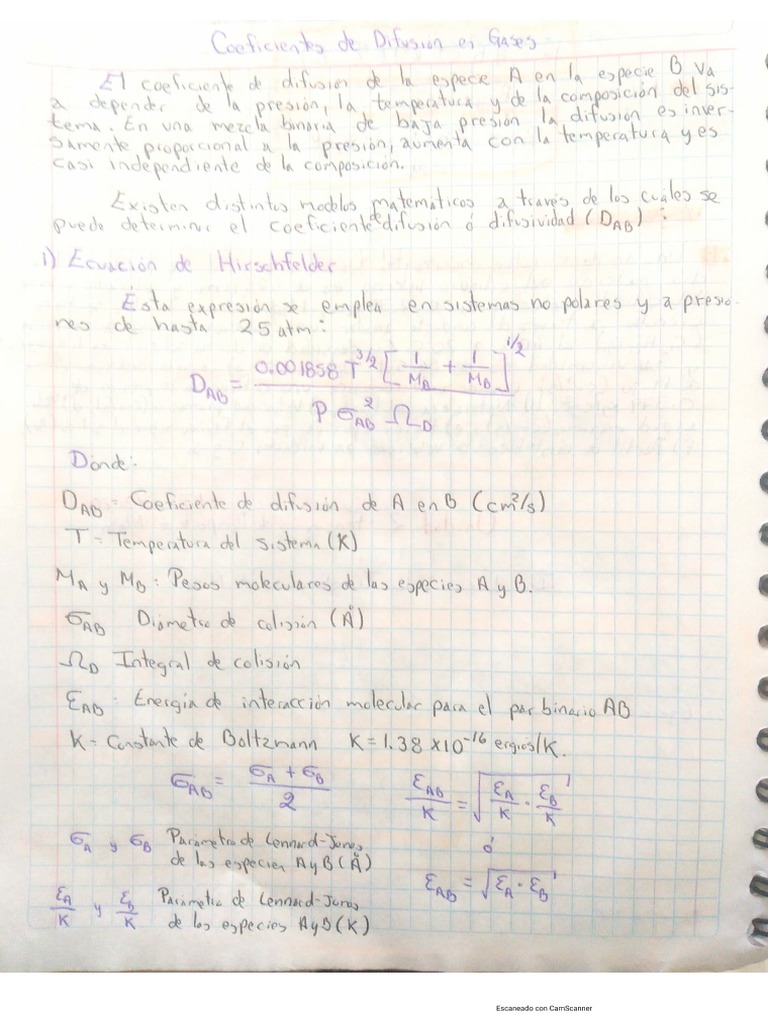 Coeficientes de Difusión en Gases
El coeficiente de difusión de la especie A en la especie B va
a depender de la presión, la temperatura y de la composición del sis-
tema. En una mezcla binaria de baja presión la difusión es inver-
samente proporcional a la presión, aumenta con la temperatura y es
casi independiente de la composición.
Existen distintos modelos matemáticos a través de los cuáles se
puede determinar el coeficiente de difusión ó difusividad (D_AB):
i) Ecuación de Hirschfelder
Ésta expresión se emplea en sistemas no polares y a presio-
nes de hasta 25 atm:
D_AB = 0.001858 T^3/2 [1/M_A + 1/M_B]^1/2 / P σ_AB^2 Ω_D
Donde:
D_AB = Coeficiente de difusión de A en B (cm²/s)
T = Temperatura del sistema (K)
M_A y M_B: Pesos moleculares de las especies A y B.
σ_AB Diámetro de colisión (Å)
Ω_D Integral de colisión
ε_AB: Energía de interacción molecular para el par binario AB
K = Constante de Boltzmann K = 1.38 x10^-16 ergios/K.
σ_AB = σ_A + σ_B / 2 ε_AB/K = √(ε_A/K · ε_B/K)
σ_A y σ_B Parámetro de Lennard-Jones ó
de las especies A y B (Å)
ε_AB = √(ε_A · ε_B)
ε_A/K y ε_B/K Parámetro de Lennard-Jones
de las especies A y B (K)
Escaneado con CamScanner